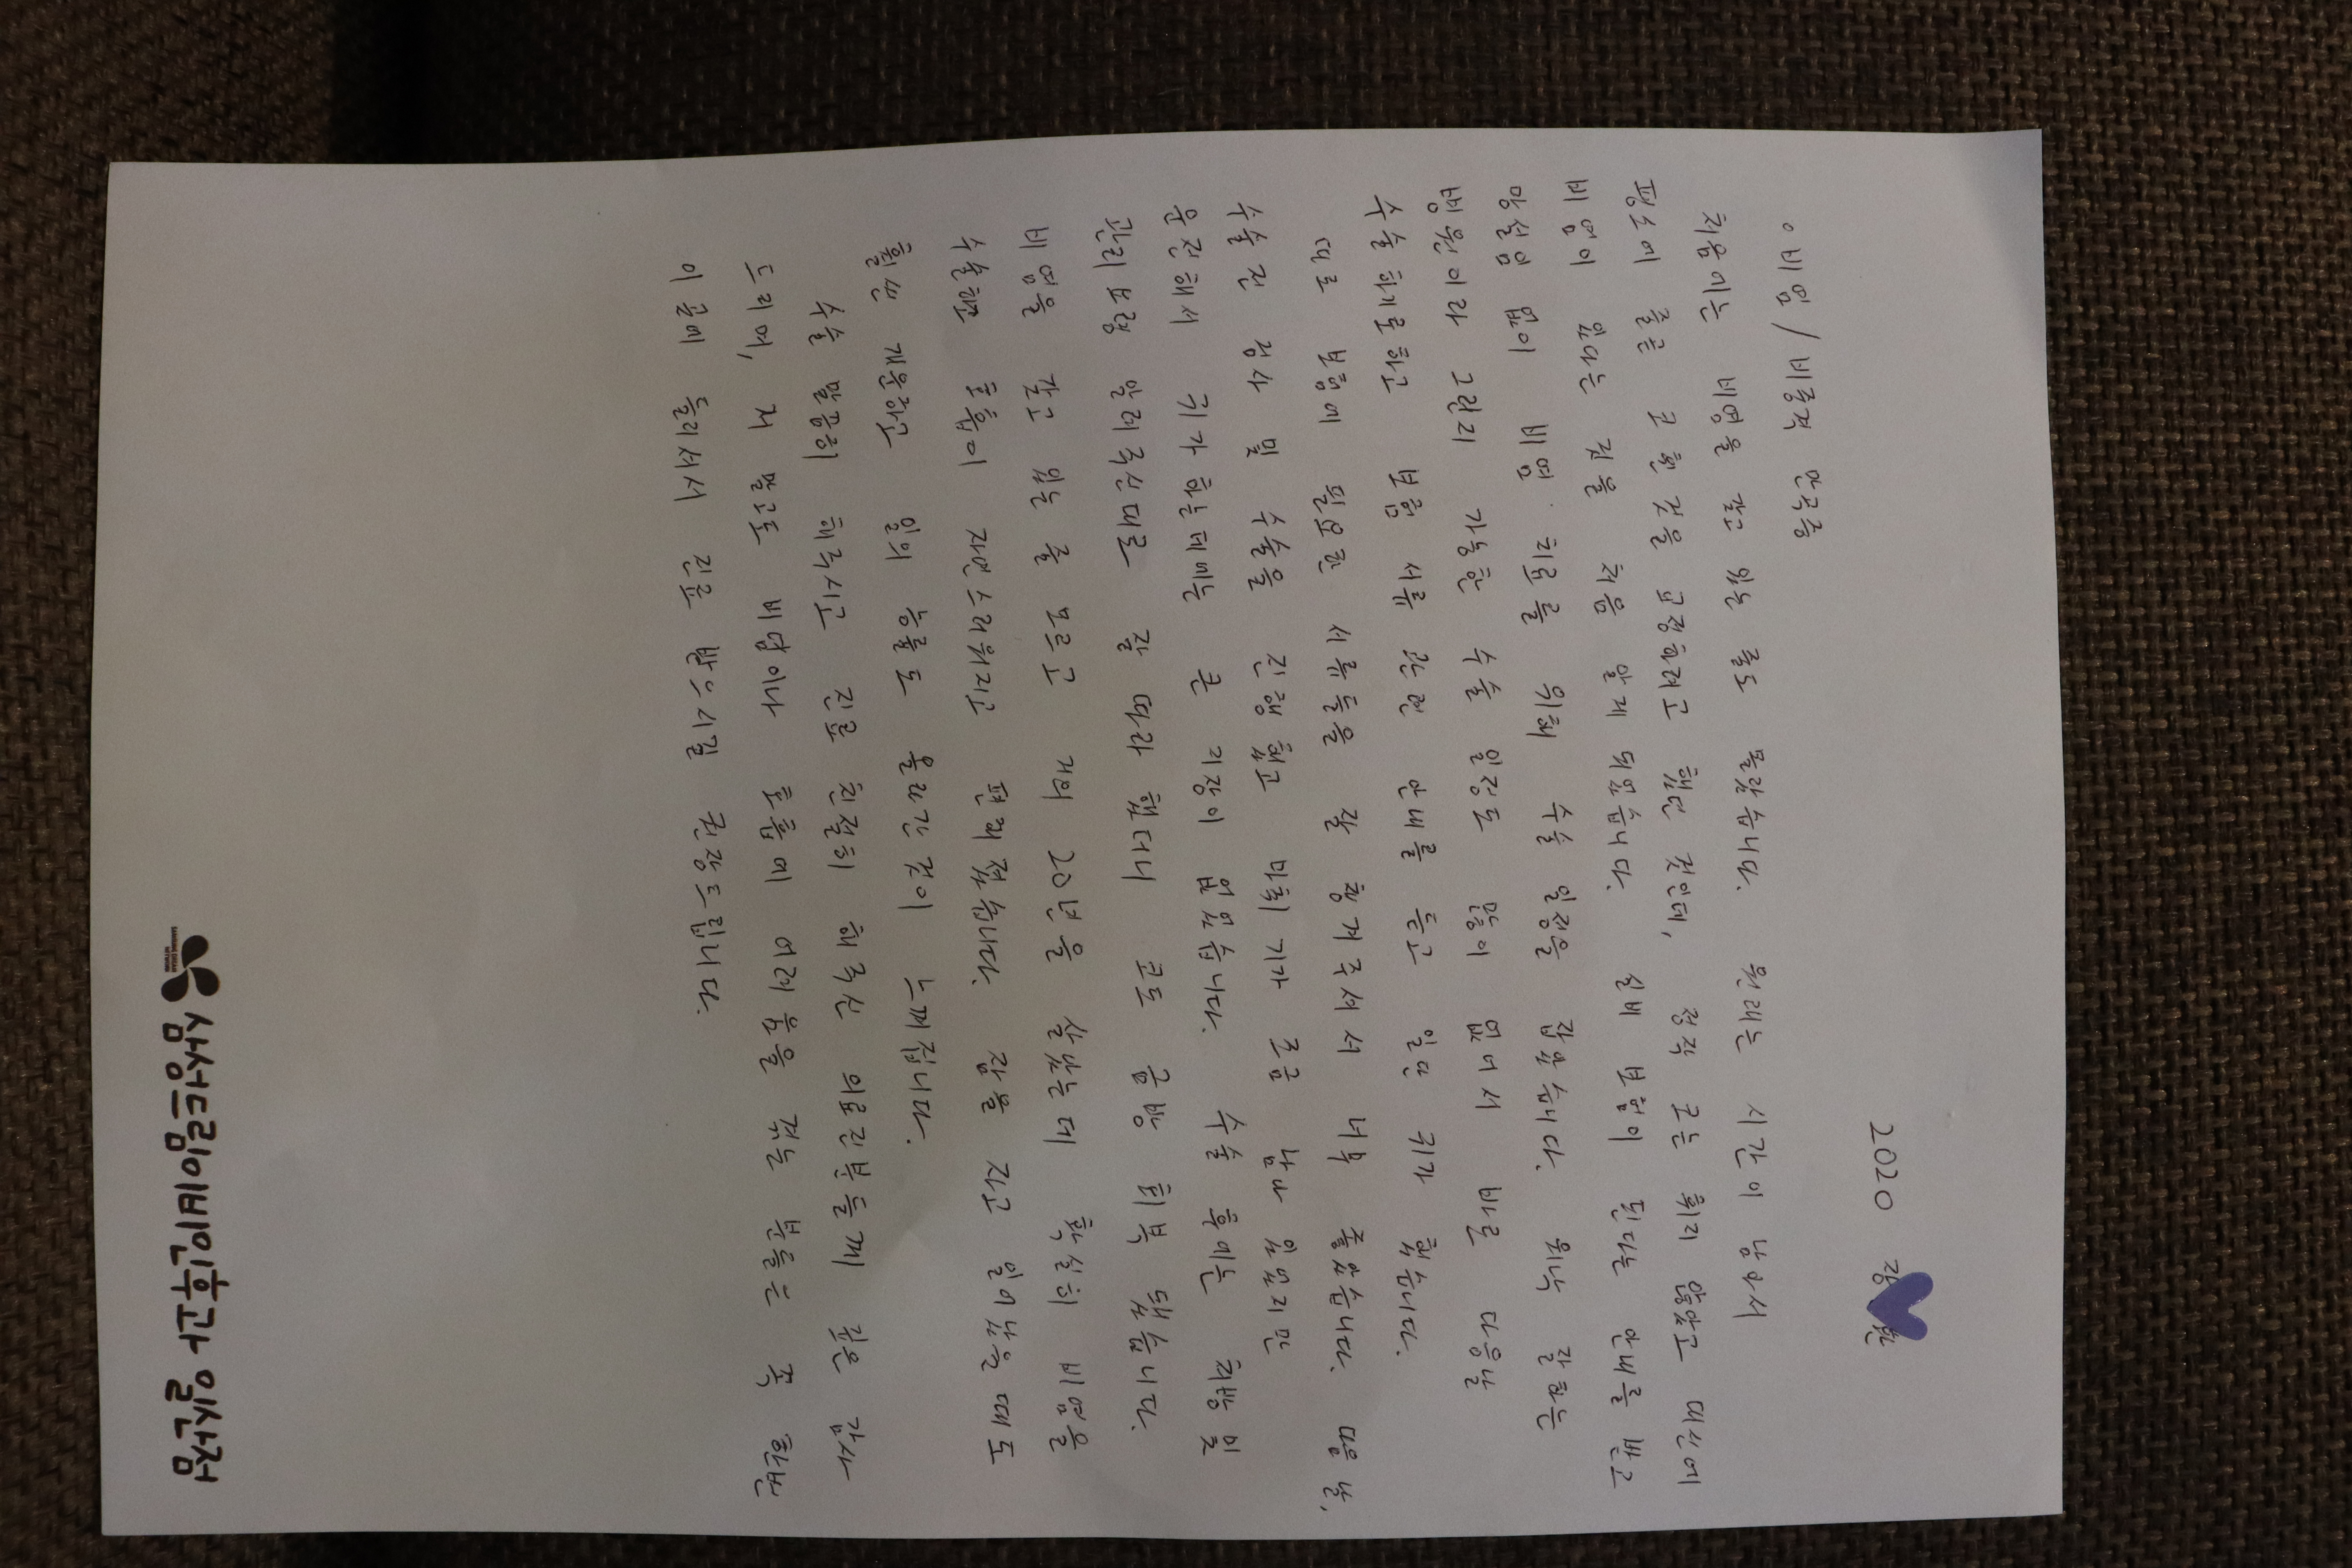 2020 강 현
◦ 비염 / 비중격 만곡증
처음에는 비염을 갖고 있는 줄도 몰랐습니다. 원래는 시간이 남아서
평소에 콧볼 구 휜 것을 교정하려고 했던 것인데, 정작 코는 휘지 않았고 대신에
비염이 있다는 것을 처음 알게 되었습니다. 실비 보험이 된다는 안내를 받고
망설임 없이 비염 치료를 위해 수술 일정을 잡았습니다. 워낙 잘하는
병원이라 그런지 가능한 수술 일정도 많이 없어서 바로 다음날
수술하기로 하고 보험 서류 관련 안내를 듣고 일단 귀가 했습니다.
따로 보험에 필요한 서류들을 잘 챙겨주셔서 너무 좋았습니다. 다음 날,
수술 전 검사 및 수술을 진행했고 마취 기가 조금 남아 있었지만
운전해서 귀가하는데에는 큰 지장이 없었습니다. 수술 후에는 처방 및
관리 요령 알려주신대로 잘 따라 했더니 코도 금방 회복 됐습니다.
비염을 갖고 있는 줄 모르고 거의 20년을 살았는데 확실히 비염을
수술하면 호흡이 자연스러워지고 편해졌습니다. 잠을 자고 일어났을 때도
훨씬 개운하고 일의 능률도 올라간 것이 느껴집니다.
수술 꼼꼼히 해주시고 진료 친절히 해주신 의료진분들께 깊은 감사
드리며, 저 말고도 비염이나 호흡에 어려움을 겪는 분들은 꼭 한번
이곳에 들러서 진료 받으시길 권장드립니다.